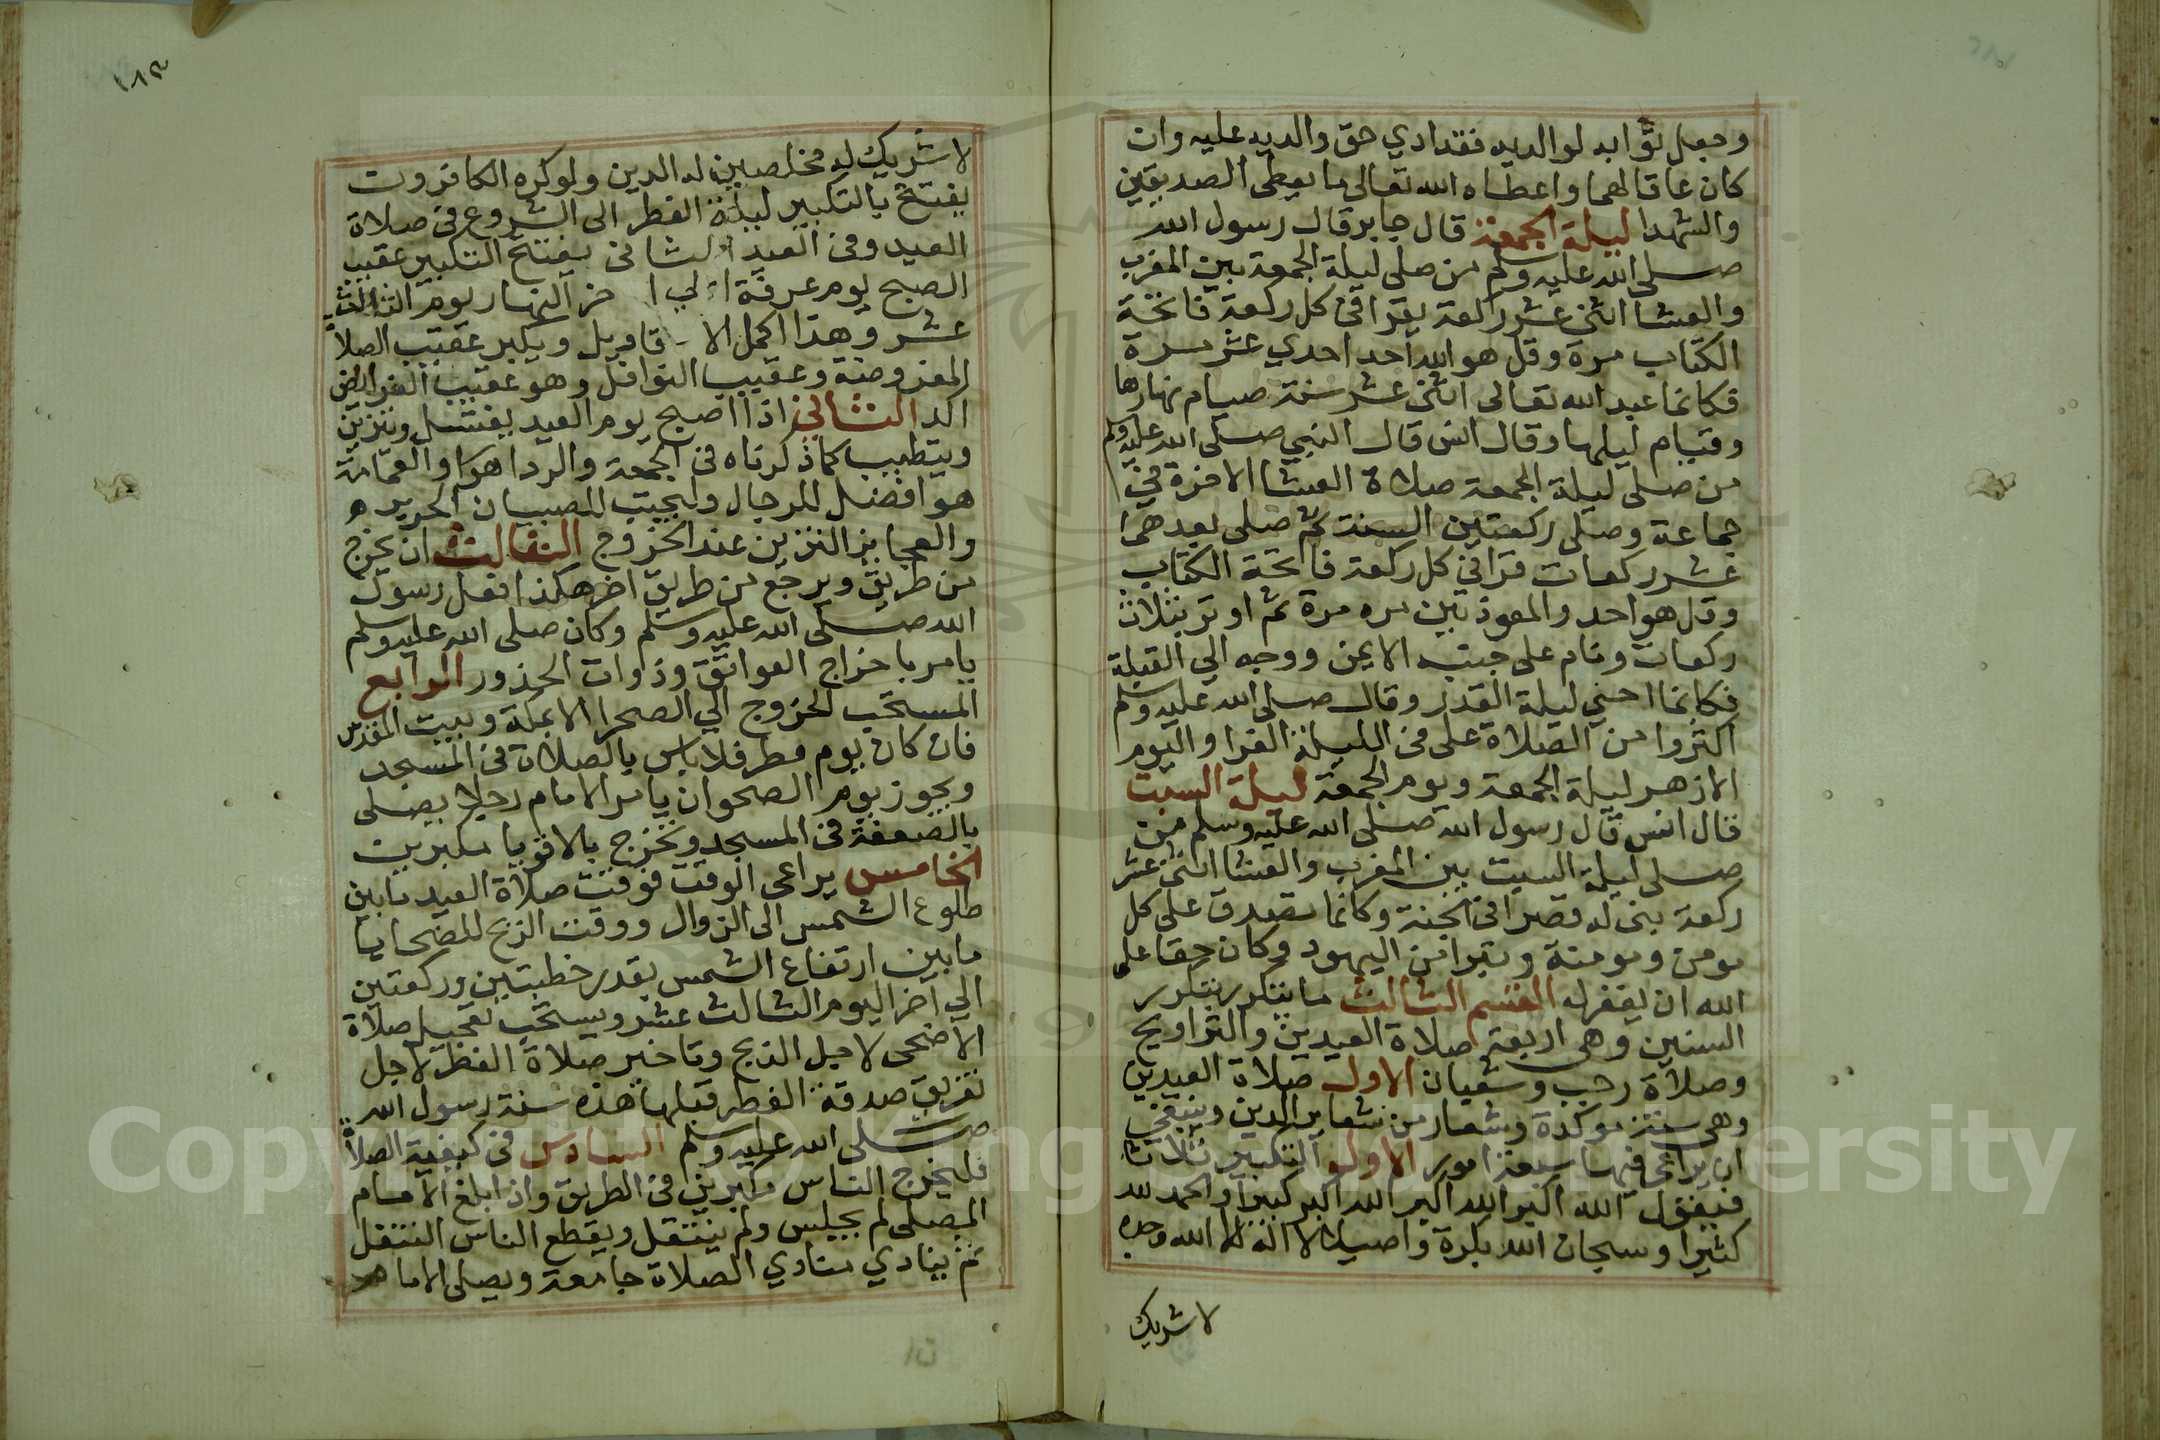 وجعل ثوابه لوالديه فقد ادي حق والديه عليه وان
كان عاقا لهما واعطاه الله تعالى ما يعطى الصديقين
والشهدا ليلة الجمعة قال جابر قال رسول الله
صلى الله عليه وسلم من صلى ليلة الجمعة بين المغرب
والعشا اثنى عشر ركعة يقرا فى كل ركعة فاتحة
الكتاب مرة وقل هو الله احد احدي عشر مرة
فكانما عبد الله تعالى اثنى عشر سنة صيام نهارها
وقيام ليلها وقال انس قال النبي صلى الله عليه وسلم
من صلى ليلة الجمعة صلاة العشا الاخرة في
جماعة وصلى ركعتين السنة ثم صلى بعدهما
عشر ركعات قرا في كل ركعة فاتحة الكتاب
وقل هو احد والمعوذتين مره مرة ثم اوتر بثلاث
ركعات ونام على جنبه الايمن ووجه الي القبلة
فكانما احيي ليلة القدر وقال صلى الله عليه وسلم
اكثروا من الصلاة على فى الليلة الغرا واليوم
الازهر ليلة الجمعة ويوم الجمعة ليلة السبت
قال انس قال رسول الله صلى الله عليه وسلم من
صلى ليلة السبت بين المغرب والعشا اثنى عشر
ركعة بنى له قصرا فى الجنة وكانما تصدق على كل
مومن ومومنة وتبرا من اليهود وكان حقا على
الله ان يغفر له القسم الثالث ما يتكرر بتكرر
السنين وهى اربعة صلاة العيدين والتراويح
وصلاة رجب وشعبان الاول صلاة العيدين
وهى سنة موكدة وشعار من شعاير الدين وينبغى
ان يراعى فيها سبعة امور الاول التكبير ثلاثا
فيقول الله اكبر الله اكبر الله اكبر كبيرا والحمد لله
كثيرا وسبحان الله بكرة واصيلا لا اله الا الله وحده
لا شريك
١٨٣
لا شريك له مخلصين له الدين ولو كره الكافرون
يفتتح بالتكبير ليلة الفطر الى الشروع فى صلاة
العيد وفى العيد الثانى يفتتح التكبير عقيب
الصبح يوم عرفة الي اخر النهار يوم الثالث
عشر وهذا اكمل الاقاويل ويكبر عقيب الصلاة
المفروضة وعقيب النوافل وهو عقيب الفرايض
اكد الثاني اذا اصبح يوم العيد يغتسل ويتزين
ويتطيب كما ذكرناه فى الجمعة والردا هو او العمامة
هو افضل للرجال وليجتنب للصبيان الحرير
والعجايز التزين عند الخروج الثالث ان يخرج
من طريق ويرجع من طريق اخر هكذا فعل رسول
الله صلى الله عليه وسلم وكان صلى الله عليه وسلم
يامر باخراج العواتق وذوات الخدور الرابع
المستحب الخروج الي الصحرا الا بمكة وبيت المقدس
فان كان يوم مطر فلا باس بالصلاة فى المسجد
ويجوز يوم الصحو ان يامر الامام رجلا يصلى
بالضعفة فى المسجد ويخرج بالاقويا مكبرين
الخامس يراعى الوقت فوقت صلاة العيد ما بين
طلوع الشمس الى الزوال ووقت الذبح للضحايا
ما بين ارتفاع الشمس بقدر خطبتين وركعتين
الي اخر اليوم الثالث عشر ويستحب تعجيل صلاة
الاضحى لاجل الذبح وتاخير صلاة الفطر لاجل
تفريق صدقة الفطر قبلها هذه سنة رسول الله
صلى الله عليه وسلم السادس فى كيفية الصلاة
فليخرج الناس مكبرين فى الطريق واذا بلغ الامام
المصلى لم يجلس ولم يتنفل ويقطع الناس التنفل
ثم ينادي منادي الصلاة جامعة ويصلى الامام